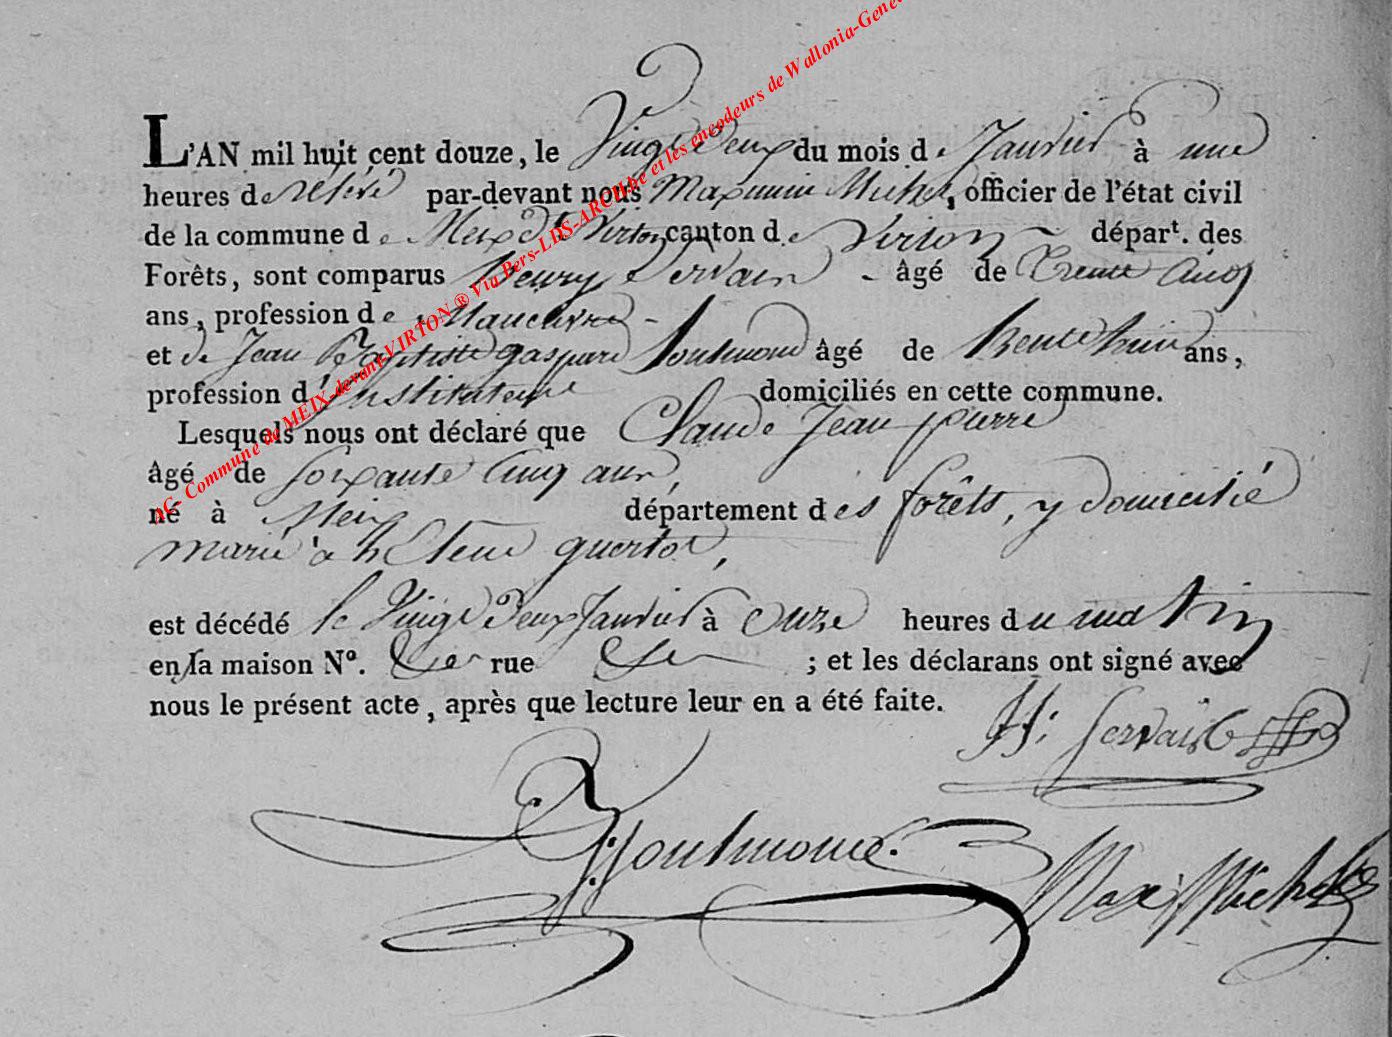 L'AN mil huit cent douze, le Vingt Deux du mois de Janvier à une
heures de relevé par-devant nous Maximin Michel, officier de l'état civil
de la commune de Meix dt Virton canton de Virton départ. des
Forêts, sont comparus henry Servais âgé de Trente Ans
ans, profession de Manœuvre
et de Jean Baptiste gaspard âgé de trente huit ans,
profession d'Instituteur domiciliés en cette commune.
Lesquels nous ont déclaré que Claude Jean pierre
âgé de soixante Cinq ans,
né à Meix département des forêts, y domicilié
marié à hélene
est décédé le Vingt Deux Janvier à Onze heures du matin
en sa maison No. rue ; et les déclarans ont signé avec
nous le présent acte, après que lecture leur en a été faite.
H: Servais
Max: Michel
AC Commune de MEIX-devant-VIRTON ® Via Pers-LDS-ARCHbe et les encodeurs de Wallonia-Gene